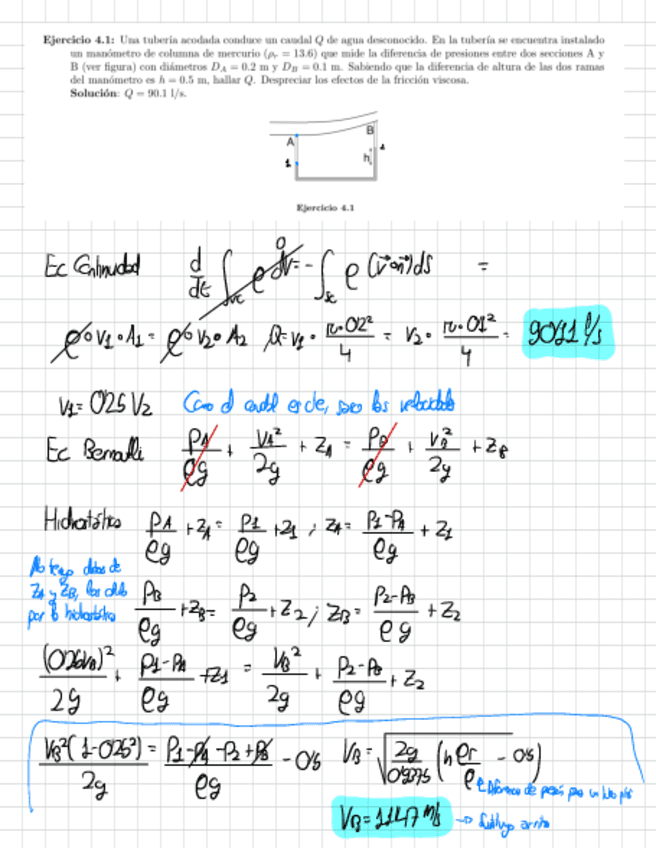 Ejercicio 4.1: Una tubería acodada conduce un caudal Q de agua desconocido. En la tubería se encuentra instalado
un manómetro de columna de mercurio (ρr = 13.6) que mide la diferencia de presiones entre dos secciones A y
B (ver figura) con diámetros DA = 0.2 m y DB = 0.1 m. Sabiendo que la diferencia de altura de las dos ramas
del manómetro es h = 0.5 m, hallar Q. Despreciar los efectos de la fricción viscosa.
Solución: Q = 90.1 l/s.
A B
1 h 2
Ejercicio 4.1
Ec Continuidad d/dt ∫vc ρ dV = - ∫sc ρ (v·n) ds =
0
ρ·V1·A1 = ρ·V2·A2 Q = V1 · π·0'2²/4 = V2 · π·0'1²/4 = 90'11 l/s
V1 = 0'25 V2 Como el caudal es cte, saco las velocidades
Ec Bernoulli PA/ρg + VA²/2g + ZA = PB/ρg + VB²/2g + ZB
Hidrostática PA/ρg + ZA = P1/ρg + Z1 ; ZA = P1-PA/ρg + Z1
No tengo datos de
ZA y ZB, los
por la hidrostática
PB/ρg + ZB = P2/ρg + Z2 ; ZB = P2-PB/ρg + Z2
(0'25VB)²/2g + P1-PA/ρg + Z1 = VB²/2g + P2-PB/ρg + Z2
VB²(1-0'25²)/2g = P1-PA-P2+PB/ρg - 0'5 VB = √(2g/0'9375 (h ρr/ρ - 0'5))
Diferencia de
VB = 11'47 m/s → Sustituyo arriba